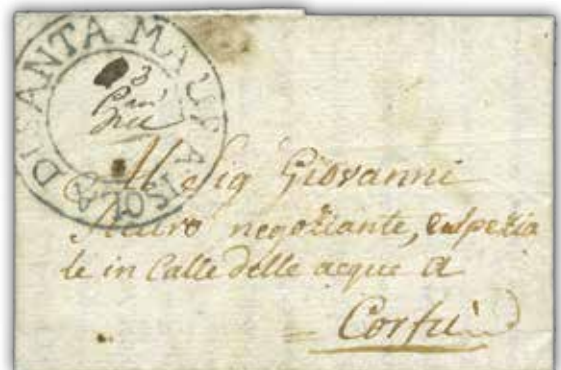 ISOLA DI SANTA MAURA
3
Al Sig Giovanni
negoziante, e
le in Calle delle acque a
Corfù